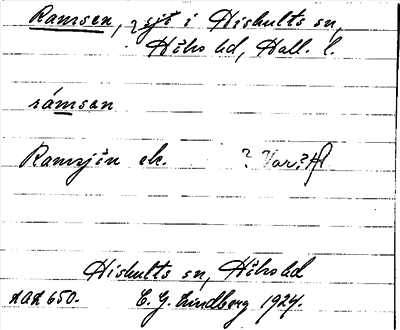 Ramsen, sjö i Hishults sn,
Höks hd, Hall. l.
rámsan
Ramsjön ek. ? Var? 
Hishults sn, Höks hd
AAA 650. C. G. Lindberg 1924.